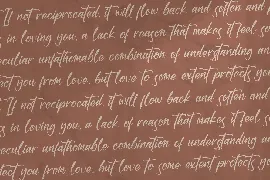 "If not reciprocated, it will flow back and soften and
s in loving you, a lack of reason that makes it feel so
eculiar unfathomable combination of understanding an
tect you from love, but love to some extent protects yo
"If not reciprocated, it will flow back and soften and
s in loving you, a lack of reason that makes it feel so
eculiar unfathomable combination of understanding an
tect you from love, but love to some extent protects yo